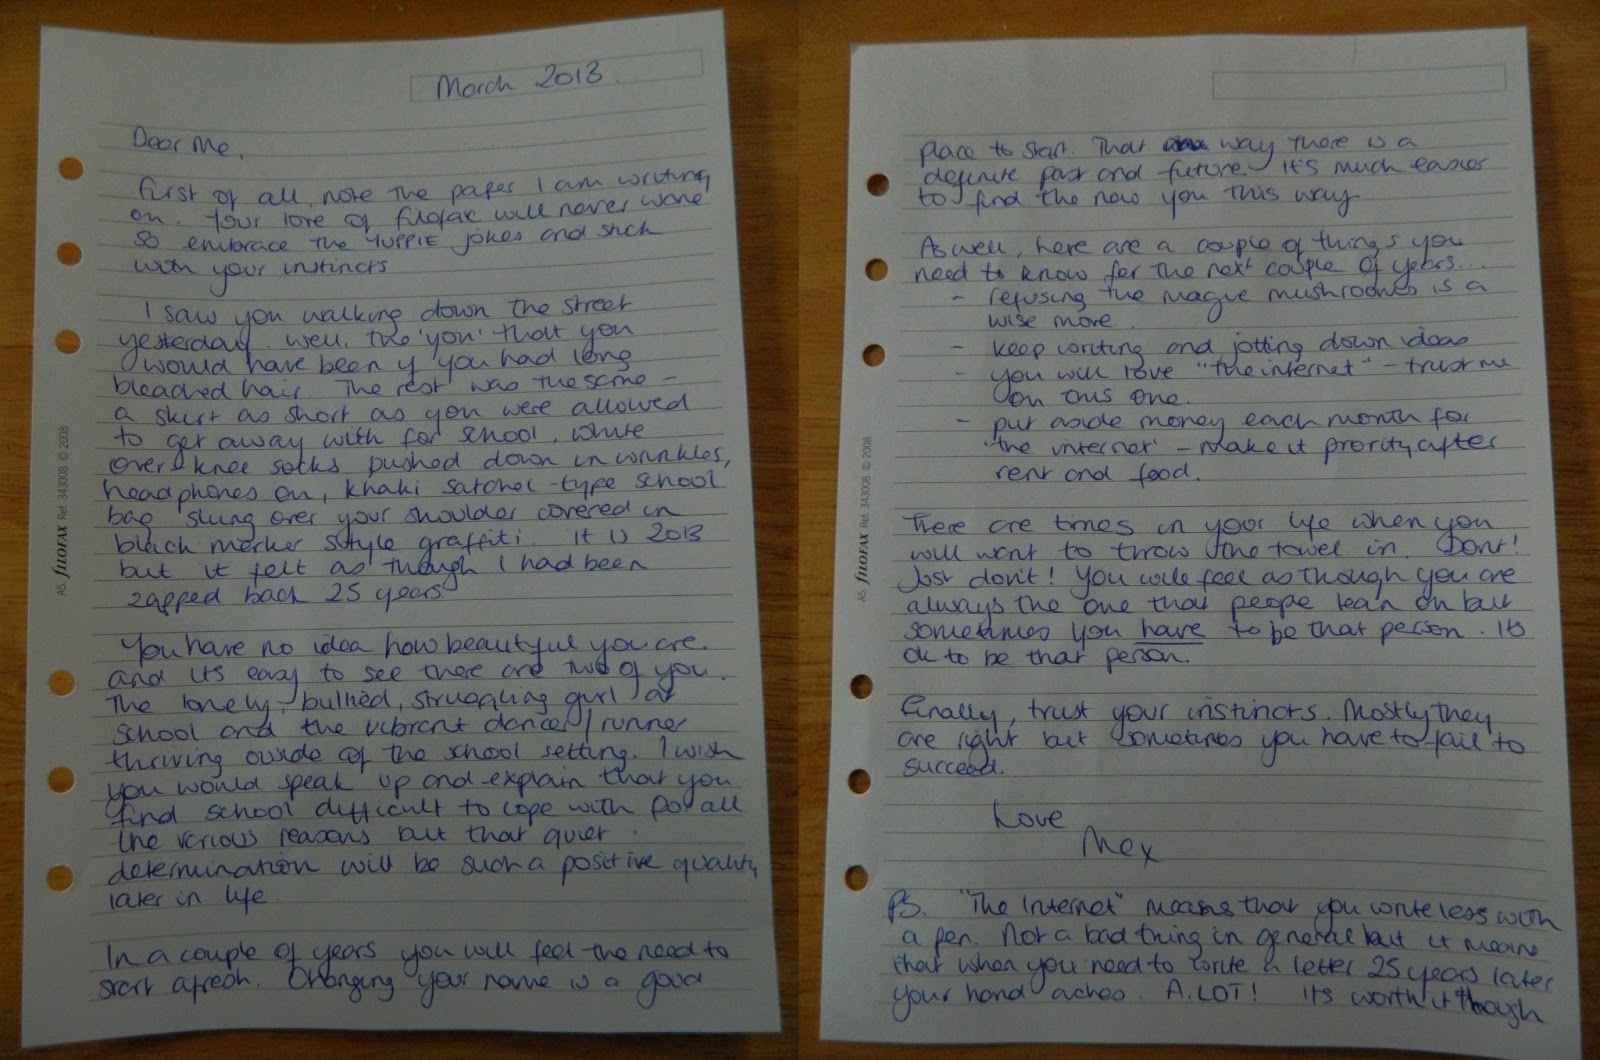 March 2013.
Dear Me,
First of all, note the paper I am writing
on. Your love of filofax will never wane
so embrace the YUPPIE jokes and stick
with your instincts
I saw you walking down the street
yesterday. Well, the 'you' that you
would have been if you had long
bleached hair. The rest was the same –
a skirt as short as you were allowed
to get away with for school, white
over knee socks pushed down in wrinkles,
headphones on, khaki satchel-type school
bag slung over your shoulder covered in
black marker style graffiti. It is 2013
but it felt as though I had been
zapped back 25 years
You have no idea how beautiful you are.
and its easy to see there are two of you.
The lonely, bullied, struggling girl at
school and the vibrant dancer/runner
thriving outside of the school setting. I wish
you would speak up and explain that you
find school difficult to cope with for all
the various reasons but that quiet
determination will be such a positive quality
later in life.
In a couple of years you will feel the need to
start afresh. Changing your name is a good
A5. filOFAX Ref. 343008 © 2008
place to start. That way there is a
definite past and future. It's much easier
to find the new you this way
As well, here are a couple of things you
need to know for the next couple of years...
- refusing the magic mushrooms is a
wise move.
- keep writing and jotting down ideas
- you will love "the internet" - trust me
on this one.
- put aside money each month for
'the internet' - make it priority after
rent and food.
There are times in your life when you
will want to throw the towel in. Dont!
Just don't! You will feel as though you are
always the one that people lean on but
sometimes you have to be that person. Its
ok to be that person.
Finally, trust your instincts. Mostly they
are right but sometimes you have to fail to
succeed.
Love
Me x
PS. "The Internet" means that you write less with
a pen. Not a bad thing in general but it means
that when you need to write a letter 25 years later
your hand aches. A.LOT! Its worth it though
A5. filOFAX Ref. 343008 © 2008